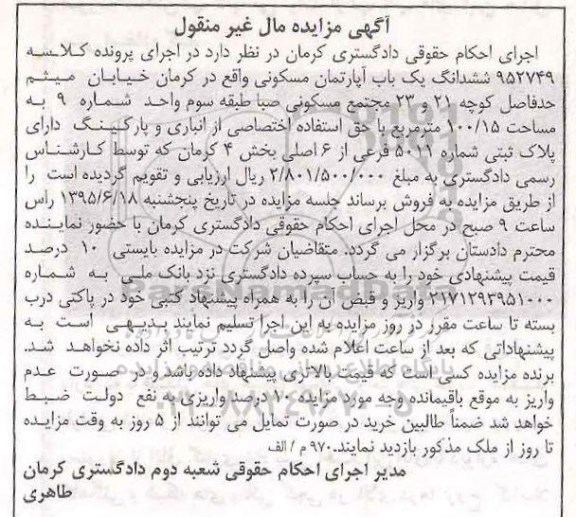 آگهی مزایده مال غیر منقول
اجرای احکام حقوقی دادگستری کرمان در نظر دارد در اجرای پرونده کلاسه
۹۵۲۷۴۹ ششدانگ یک باب آپارتمان مسکونی واقع در کرمان خیابان میثم
حدفاصل کوچه ۲۱ و ۲۳ مجتمع مسکونی صبا طبقه سوم واحد شماره ۹ به
مساحت ۱۰۰/۱۵ مترمربع با حق استفاده اختصاصی از انباری و پارکینگ دارای
پلاک ثبتی شماره ۵۰۱۱ فرعی از ۶ اصلی بخش ۴ کرمان که توسط کارشناس
رسمی دادگستری به مبلغ ۲/۸۰۱/۵۰۰/۰۰۰ ریال ارزیابی و تقویم گردیده است را
از طریق مزایده به فروش برساند جلسه مزایده در تاریخ پنجشنبه ۱۳۹۵/۶/۱۸ راس
ساعت ۹ صبح در محل اجرای احکام حقوقی دادگستری کرمان با حضور نماینده
محترم دادستان برگزار می گردد. متقاضیان شرکت در مزایده بایستی ۱۰ درصد
قیمت پیشنهادی خود را به حساب سپرده دادگستری نزد بانک ملی به شماره
۲۱۷۱۲۹۳۹۵۱۰۰۰ واریز و قبض آن را به همراه پیشنهاد کتبی خود در پاکتی درب
بسته تا ساعت مقرر در روز مزایده به این اجرا تسلیم نمایند بدیهی است به
پیشنهاداتی که بعد از ساعت اعلام شده واصل گردد ترتیب اثر داده نخواهد شد.
برنده مزایده کسی است که قیمت بالاتری پیشنهاد داده باشد و در صورت عدم
واریز به موقع باقیمانده وجه مورد مزایده ۱۰ درصد واریزی به نفع دولت ضبط
خواهد شد ضمناً طالبین خرید در صورت تمایل می توانند از ۵ روز به وقت مزایده
تا روز از ملک مذکور بازدید نمایند.۹۷۰ م / الف
مدیر اجرای احکام حقوقی شعبه دوم دادگستری کرمان
طاهری